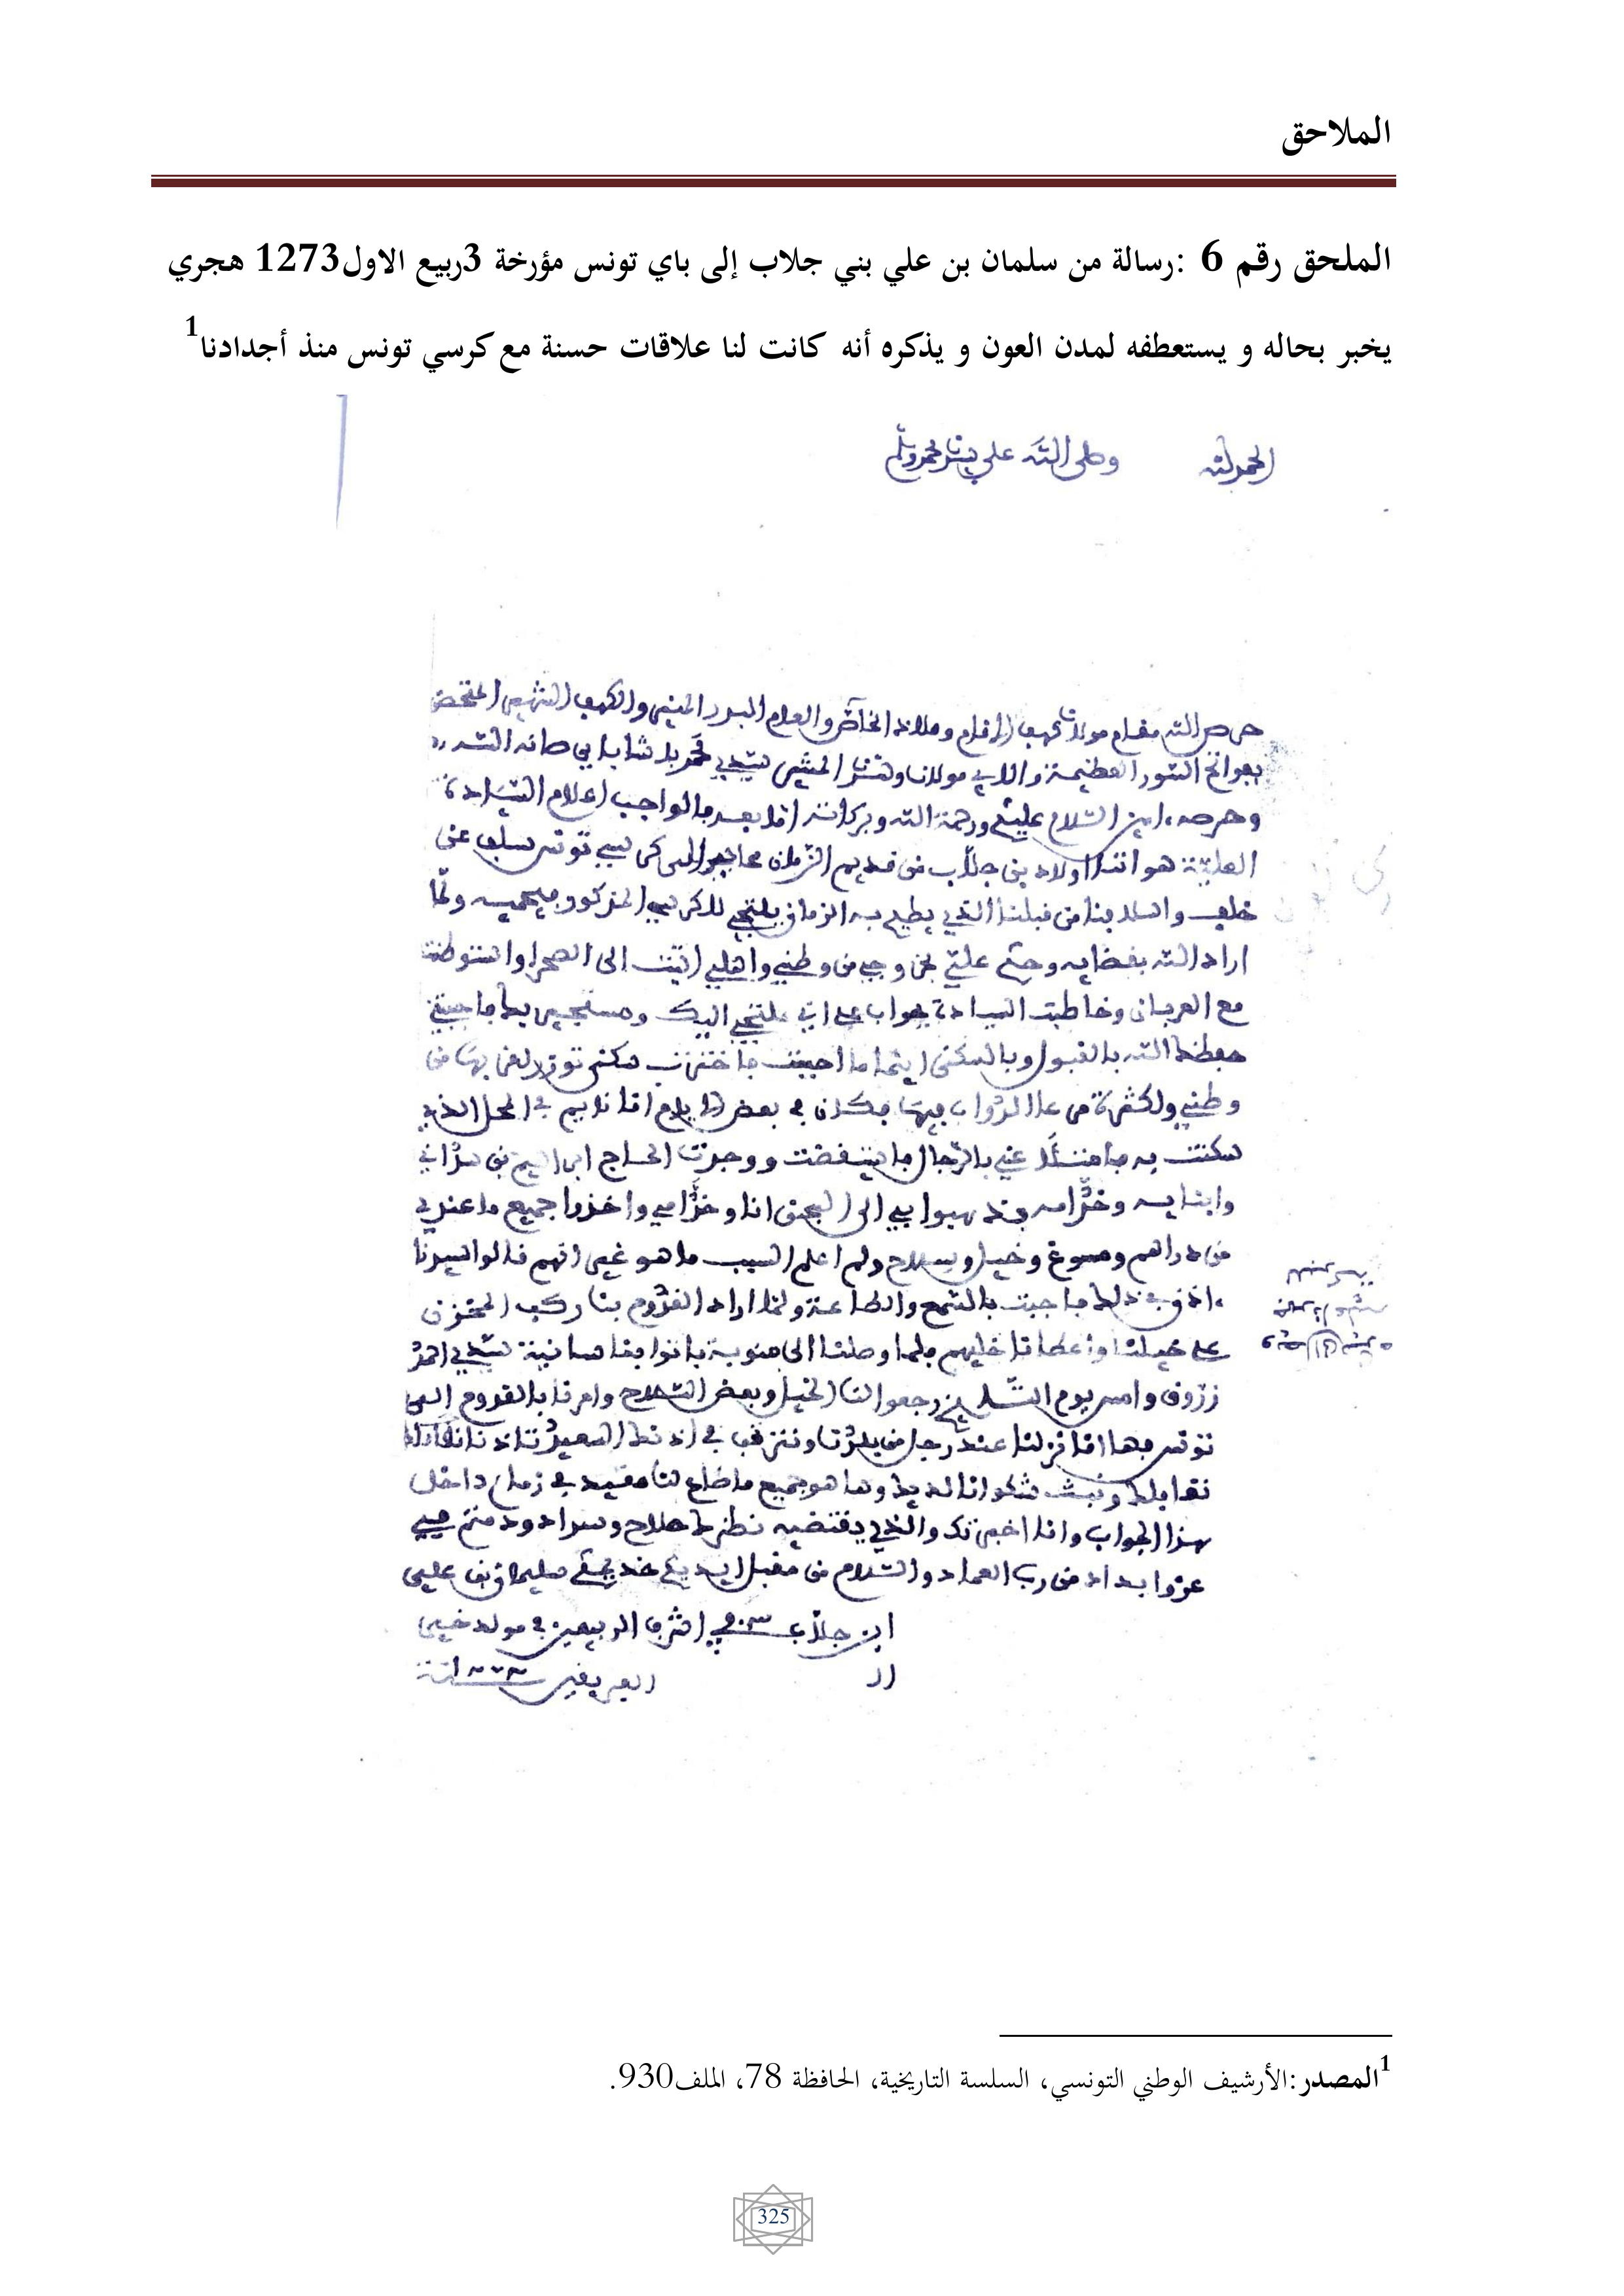 الملاحق
الملحق رقم 6 :رسالة من سلمان بن علي بني جلاب إلى باي تونس مؤرخة 3ربيع الاول1273 هجري
يخبر بحاله و يستعطفه لمدن العون و يذكره أنه كانت لنا علاقات حسنة مع كرسي تونس منذ أجدادنا1
الحمد لله وصلى الله على سيدنا محمد وسلم
حرص الله مقام مولانا كهف الأنام وملاذ الخاص والعام البدر المنير والكهف الشهير
بفواتح السور العظيمة والاي مولانا وسيدنا المشير سيدي محمد باشا باي صانه الله
وحرصه امين السلام عليكم ورحمة الله وبركاته اما بعد فالواجب اعلام السيادة
العلية هو اننا اولاد بني جلاب من قديم الزمان سلف عن
خلف واسلافنا من قبلنا الذي يطيح به الزمان يلتجي للكرسي المذكور فيحميه ولما
اراد الله بقضايه وحكم علي بخروجي من وطني واهلي اتيت الى الصحرا واستوطنت
مع العربان وخاطبت السيادة بجواب على اني ملتجي اليك ومستجير بك فاجبتني
حفظك الله بالقبول وبالسكنى اينما احببت فاخترت سكنى توزر لقربها من
وطني ولكثرة فيها فكان في بعض الايام انا نايم في المحل الذي
سكنت به عني بالرجال ووجدت الحاج ابراهيم بن
وابنايه وخدامه فذهبوا بي الى السجن انا وخدامي واخذوا جميع ما عندي
من دراهم ومسوغ وخيل وسلاح ولم اعلم السبب ما هو غير انهم قالوا سيدنا
اذن في ذلك فاجبت بالسمع والطاعة ولما اراد القدوم بنا ركب المخزن
على خيلنا واعطانا خيلهم فلما وصلنا الى منوبة سيدي احمد
زروق وامس يوم رجعوا لنا الخيل وبعض السلاح وامرنا بالقدوم الى
تونس فها انا نزلنا عند رجل من بلدنا
نقابلك شكوانا لديك وها هو جميع ما ضاع لنا مقيد في زمام داخل
بهذا الجواب وانا اخبرتك والذي يقتضيه نظرك صلاح وسداد ودمتم في
عز وامداد من رب العباد والسلام من مقبل ايديكم خديمكم سليمان بن علي
ابن جلاب في اشرف الربيعين في مولد خير
1المصدر:الأرشيف الوطني التونسي، السلسة التاريخية، الحافظة 78، الملف930.
325